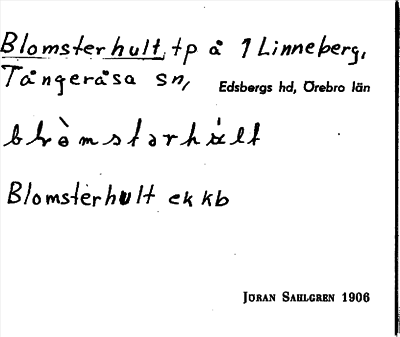 Blomsterhult, tp å 1 Linneberg,
Tångeråsa sn, Edsbergs hd, Örebro län
Blomsterhult ek kb
JÖRAN SAHLGREN 1906